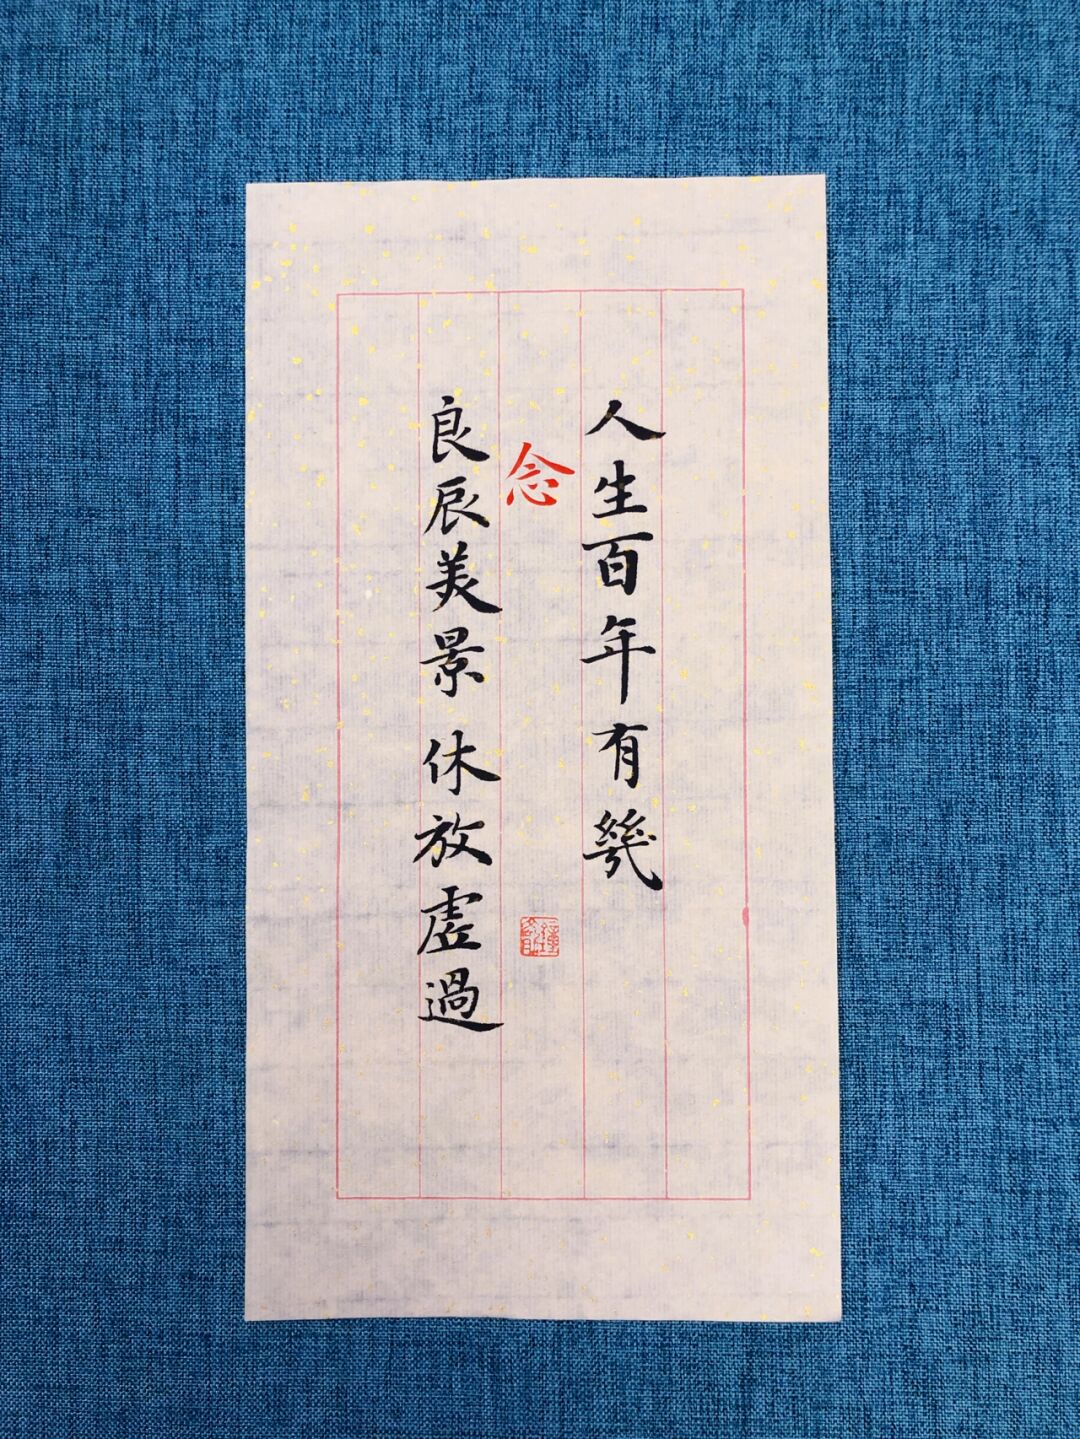 人生百年有幾
念
良辰美景休放虛過